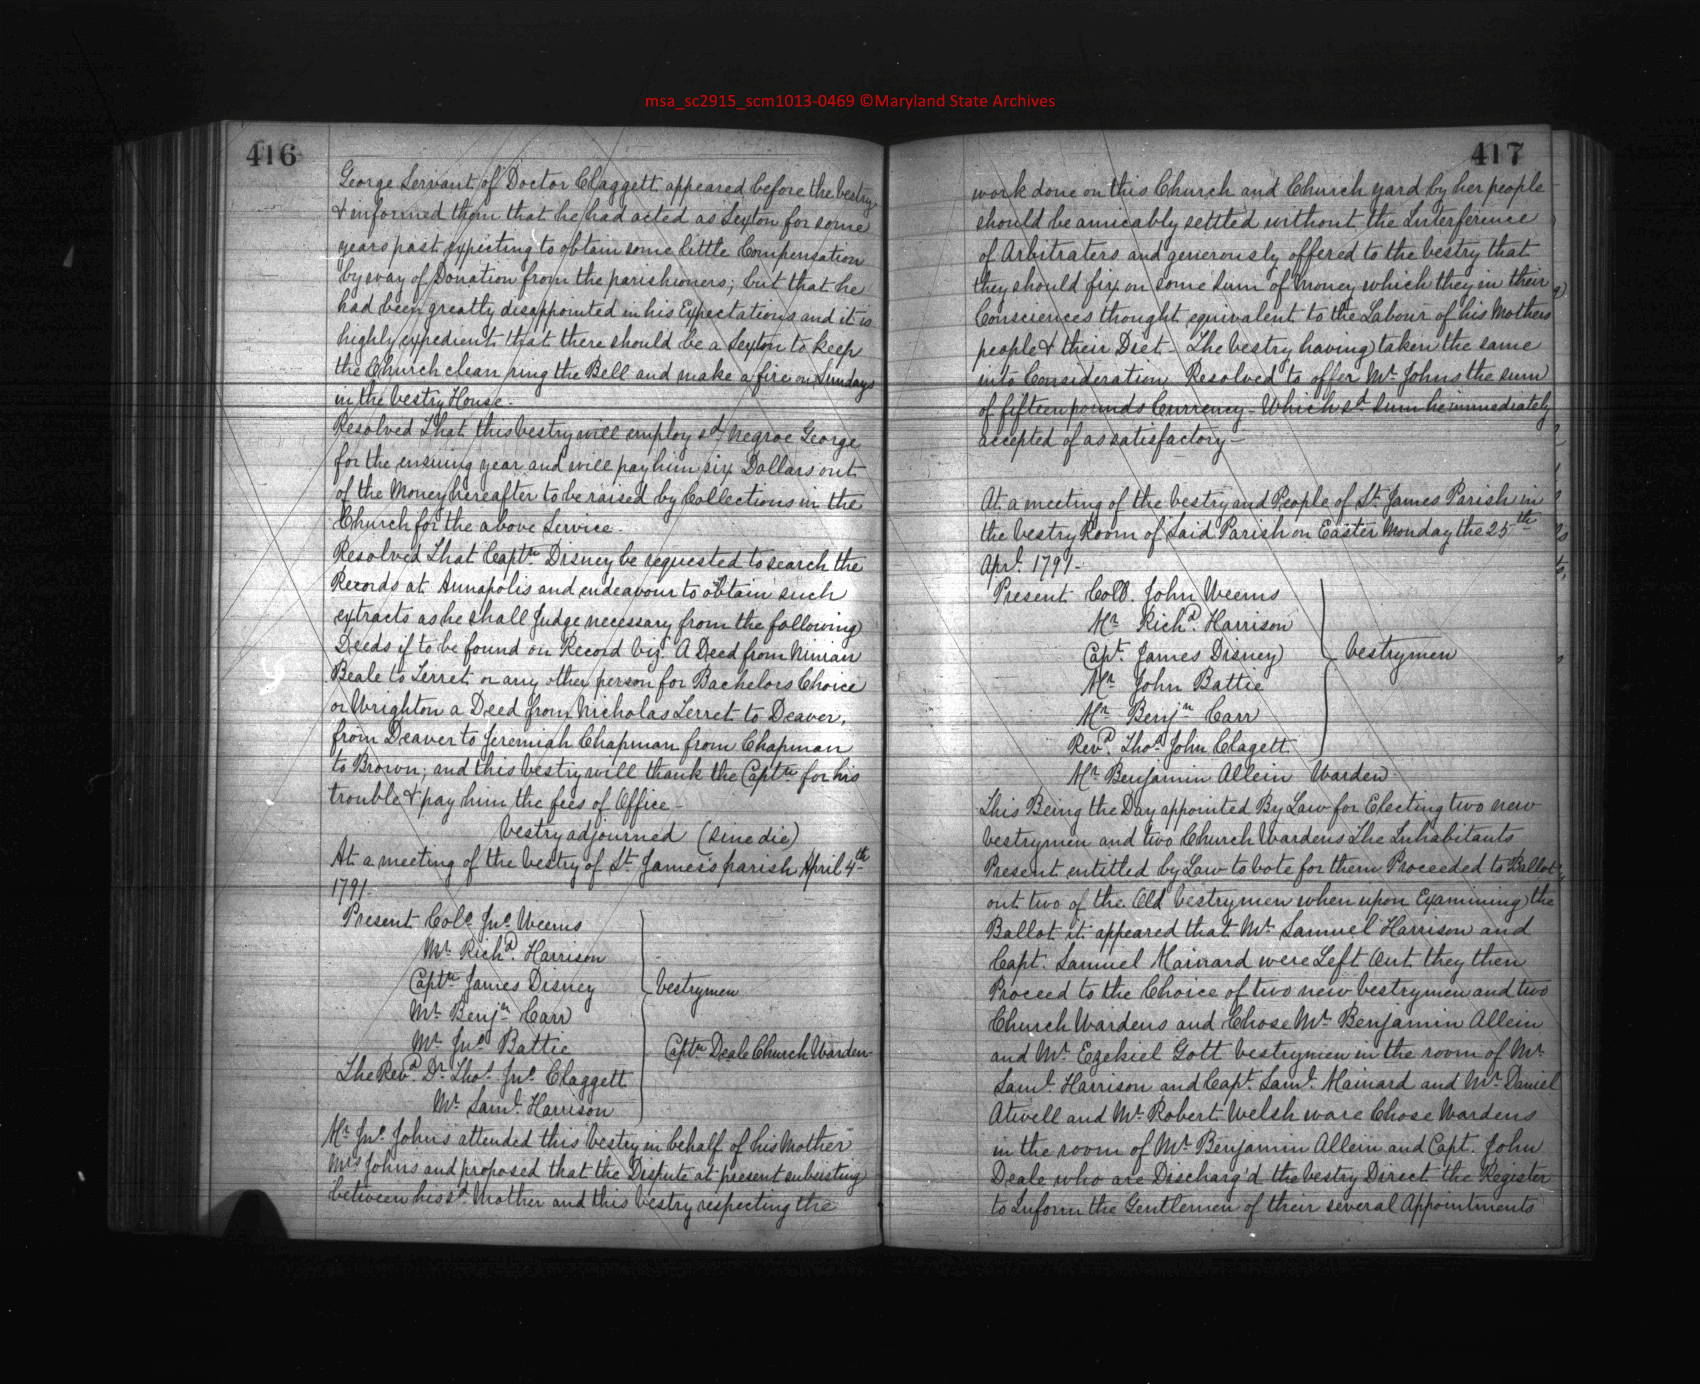 msa_sc2915_scm1013-0469 ©Maryland State Archives
416
George Servant of Doctor Claggett appeared before the vestry
& informed them that he had acted as Sexton for some
years past expecting to obtain some little Compensation
by way of Donation from the parishioners; but that he
had been greatly disappointed in his Expectations and it is
highly expedient that there should be a Sexton to keep
the Church clean ring the Bell and make a fire on Sundays
in the Vestry House.
Resolved That this vestry will employ sd. Negroe George
for the ensuing year and will pay him six Dollars out
of the Money hereafter to be raised by Collections in the
Church for the above Service.
Resolved That Captn. Disney be requested to search the
Records at Annapolis and endeavour to obtain such
extracts as he shall Judge necessary from the following
Deeds if to be found on Record viz. A Deed from Ninian
Beale to Lerret or any other person for Bachelors Choice
or Wrighton a Deed from Nicholas Lerret to Deaver,
from Deaver to Jeremiah Chapman from Chapman
to Brown; and this vestry will thank the Captn. for his
trouble & pay him the fees of Office -
Vestry adjourned (sine die)
At a meeting of the Vestry of St. James's parish April 4th
1791.
Present Colo. Jno. Weems
Mr. Richd. Harrison
Captn. James Disney
Vestrymen
Mr. Benjn. Carr
Mr. Jno. Battie
Captn. Deale Church Warden
The Revd. Dr. Thos. Jno. Claggett
Mr. Saml. Harrison
Mr. Jno. Johns attended this vestry in behalf of his Mother
Mrs. Johns and proposed that the Dispute at present subsisting
between his sd. Mother and this vestry respecting the
417
work done on this Church and Church yard by her people
should be amicably settled without the Interference
of Arbitraters and generously offered to the vestry that
they should fix on some Sum of Money which they in their
Consciences thought equivalent to the Labour of his Mothers
people & their Diet - The vestry having taken the same
into Consideration Resolved to offer Mr. Johns the sum
of fifteen pounds Currency - Which sd. Sum he immediately
accepted of as satisfactory -
At a meeting of the vestry and People of St. James Parish in
the vestry Room of Said Parish on Easter Monday the 25th
Aprl. 1791 -
Present Coll. John Weems
Mr. Richd. Harrison
Capt. James Disney
Vestrymen
Mr. John Battie
Mr. Benjn. Carr
Revd. Thos. John Clagett
Mr. Benjamin Allein Warden
This Being the Day appointed By Law for Electing two new
vestrymen and two Church Wardens The Inhabitants
Present entitled by Law to vote for them Proceeded to Ballot
out two of the Old vestrymen when upon Examining the
Ballot it appeared that Mr. Samuel Harrison and
Capt. Samuel Mainard were Left Out they then
Proceed to the Choice of two new vestrymen and two
Church Wardens and Chose Mr. Benjamin Allein
and Mr. Ezekiel Gott vestrymen in the room of Mr.
Saml. Harrison and Capt. Saml. Mainard and Mr. Daniel
Atwell and Mr. Robert Welsh ware Chose Wardens
in the room of Mr. Benjamin Allein and Capt. John
Deale who are Discharg'd the vestry Direct the Register
to Inform the Gentlemen of their several Appointments